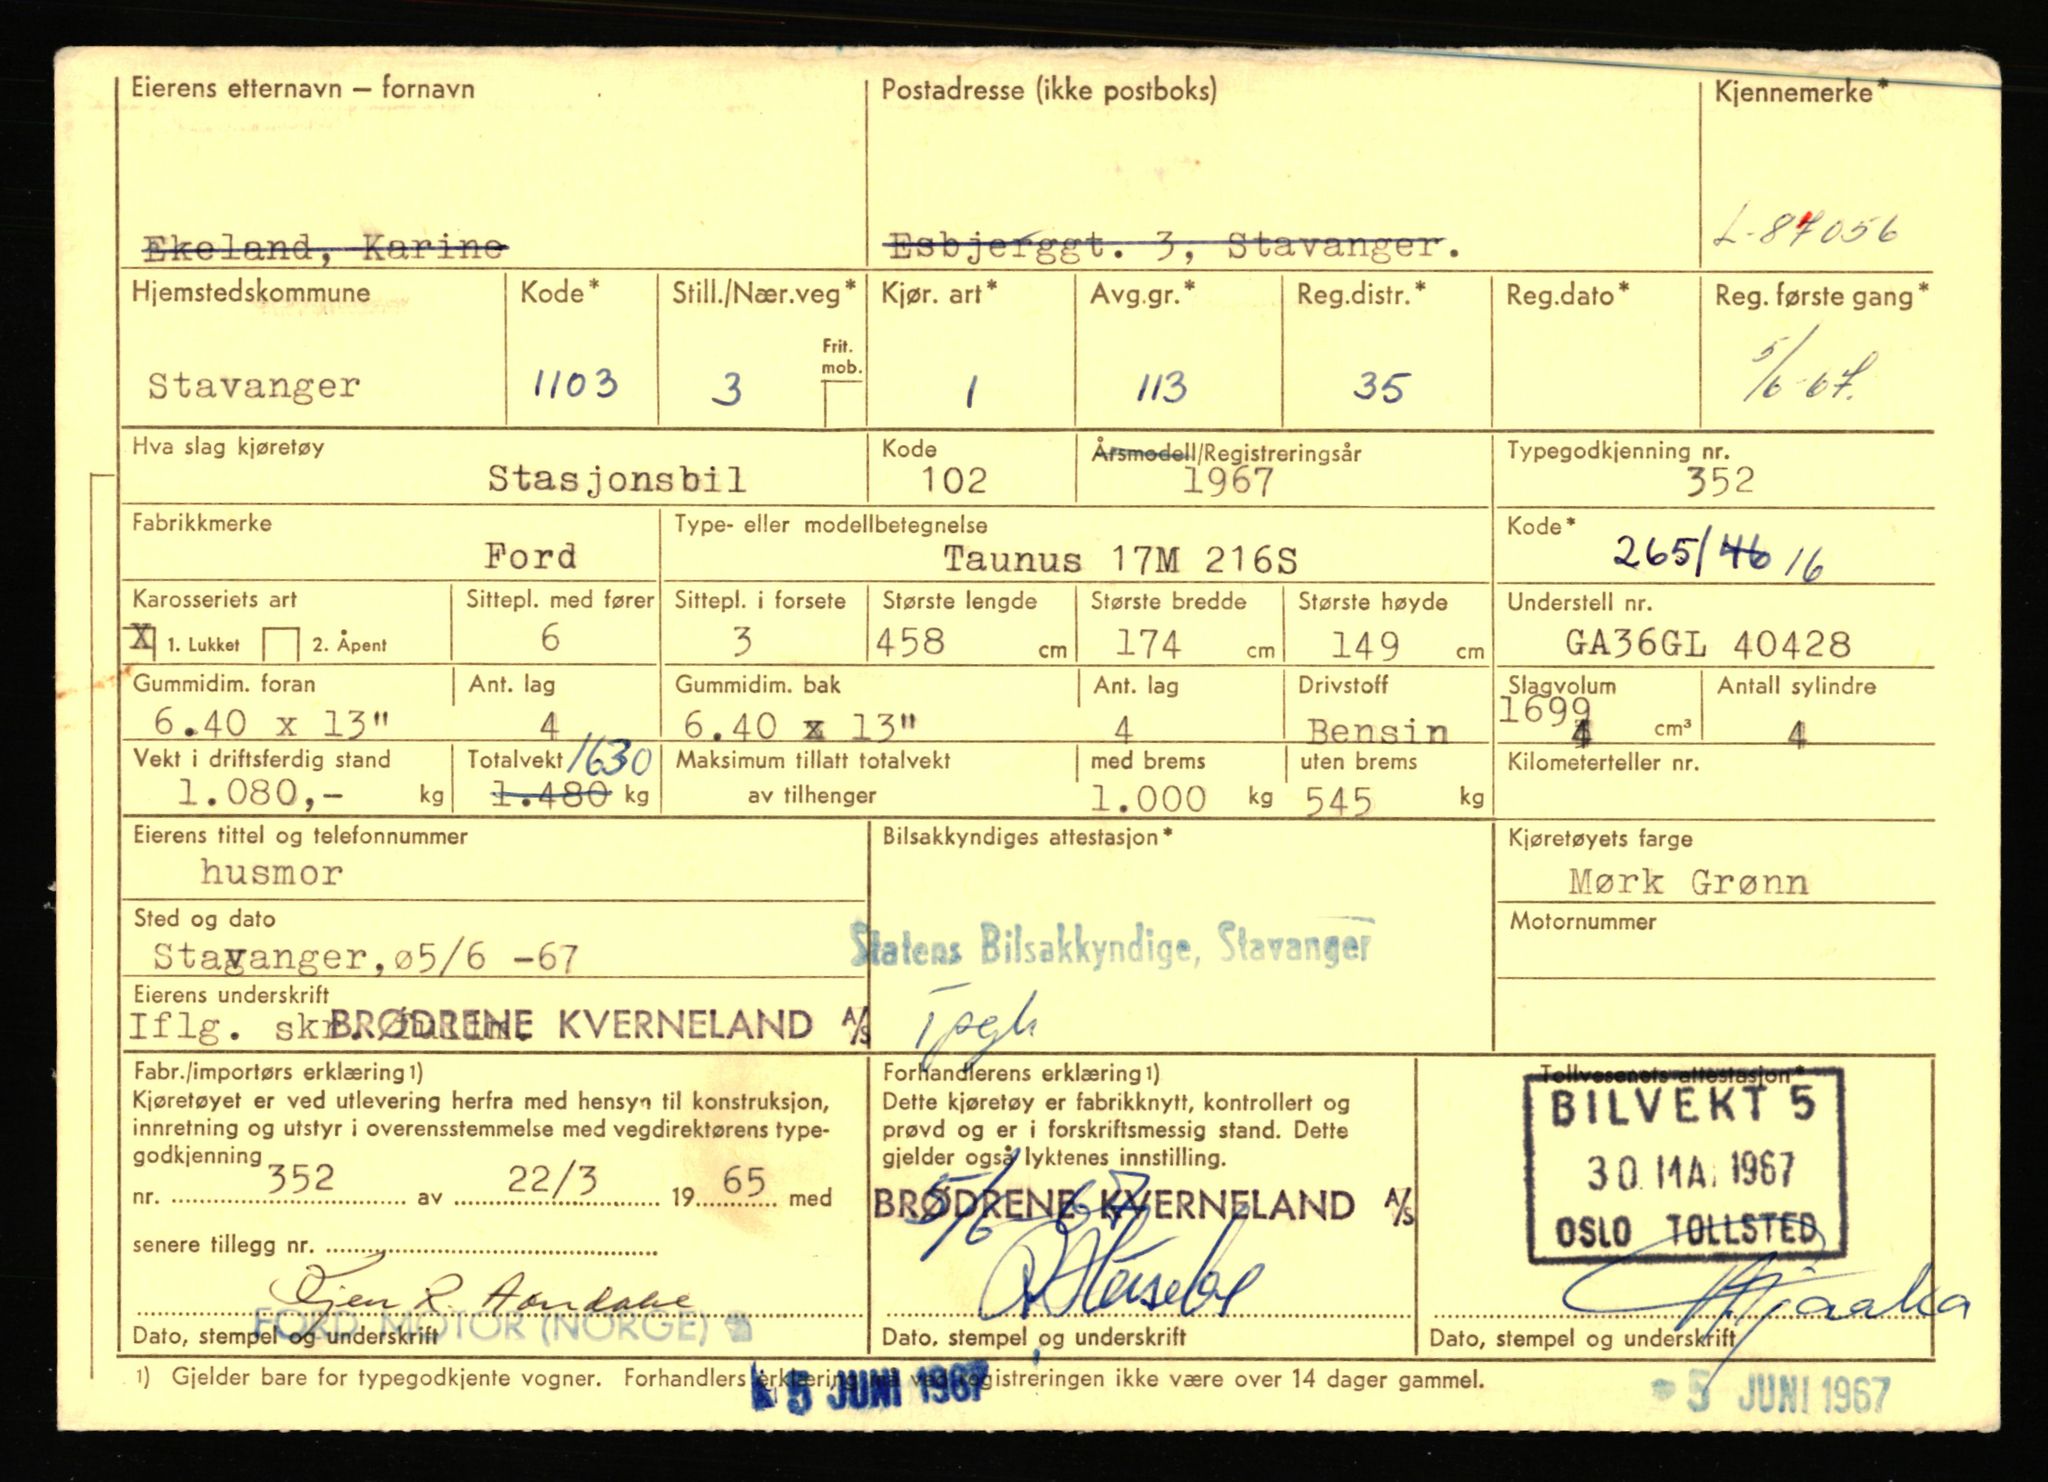 Eierens etternavn — fornavn
Postadresse (ikke postboks)
Kjennemerke*
Ekeland, Karine
Esbjerggt. 3, Stavanger.
L-87056
Hjemstedskommune
Kode*
Still./Nær.veg*
Kjør. art*
Avg.gr.*
Reg.distr.*
Reg.dato*
Reg. første gang*
Frit. mob.
Stavanger
1103
3
1
113
35
5/6-67.
Hva slag kjøretøy
Kode
Årsmodell/Registreringsår
Typegodkjenning nr.
Stasjonsbil
102
1967
352
Fabrikkmerke
Type- eller modellbetegnelse
Kode*
Ford
Taunus 17M 216S
265/46 16
Karosseriets art
Sittepl. med fører
Sittepl. i forsete
Største lengde
Største bredde
Største høyde
Understell nr.
X 1. Lukket 2. Åpent
6
3
458 cm
174 cm
149 cm
GA36GL 40428
Gummidim. foran
Ant. lag
Gummidim. bak
Ant. lag
Drivstoff
Slagvolum
Antall sylindre
6.40 x 13"
4
6.40 x 13"
4
Bensin
1699 cm³
4
Vekt i driftsferdig stand
Totalvekt 1630
Maksimum tillatt totalvekt
med brems
uten brems
Kilometerteller nr.
1.080,- kg
1.480 kg
av tilhenger
1.000 kg
545 kg
Eierens tittel og telefonnummer
Bilsakkyndiges attestasjon*
Kjøretøyets farge
husmor
Mørk Grønn
Sted og dato
Motornummer
Stavanger, ø5/6 -67
Statens Bilsakkyndige, Stavanger
Eierens underskrift
Iflg. skr. fullm.
BRØDRENE KVERNELAND A/S
Tpgk
Fabr./importørs erklæring1)
Forhandlerens erklæring1)
Tollvesenets attestasjon*
Kjøretøyet er ved utlevering herfra med hensyn til konstruksjon,
innretning og utstyr i overensstemmelse med vegdirektørens type-
godkjenning
nr. 352 av 22/3 1965 med
senere tillegg nr.
Dette kjøretøy er fabrikknytt, kontrollert og
prøvd og er i forskriftsmessig stand. Dette
gjelder også lyktenes innstilling.
5/6-67
BRØDRENE KVERNELAND A/S
BILVEKT 5
30 MAI 1967
OSLO TOLLSTED
FORD MOTOR (NORGE)
Dato, stempel og underskrift
Dato, stempel og underskrift
Dato, stempel og underskrift
1) Gjelder bare for typegodkjente vogner. Forhandlers erklæring må ved registreringen ikke være over 14 dager gammel.
5 JUNI 1967
- 5 JUNI 1967